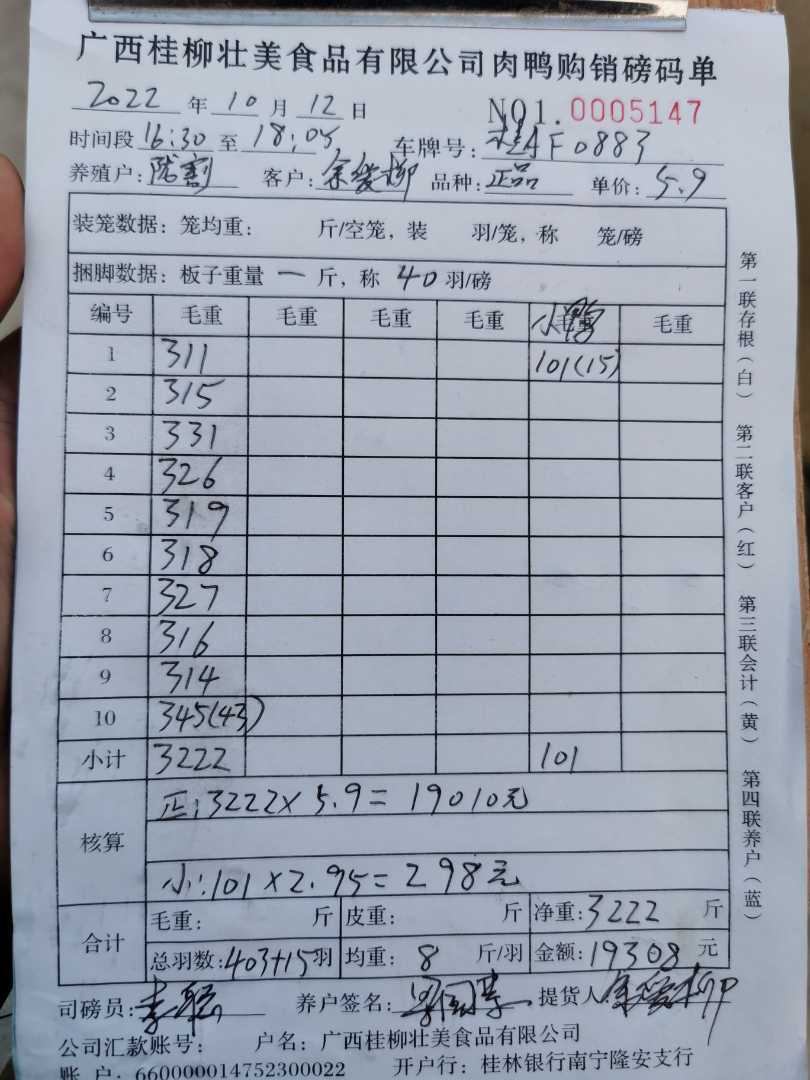 广西桂柳壮美食品有限公司肉鸭购销磅码单
2022 年 10 月 12 日 NO1.0005147
时间段 16:30 至 18:05 车牌号: 桂AF0883
养殖户: 客户: 品种: 正品 单价: 5.9
装笼数据: 笼均重: 斤/空笼, 装 羽/笼, 称 笼/磅
捆脚数据: 板子重量 一 斤, 称 40 羽/磅
编号 毛重 毛重 毛重 毛重 小鸭 毛重
1 311 101(15)
2 315
3 331
4 326
5 319
6 318
7 327
8 316
9 314
10 345(43)
小计 3222 101
核算
正: 3222×5.9=19010元
小: 101×2.95=298元
合计
毛重: 斤 皮重: 斤 净重: 3222 斤
总羽数: 403+15 羽 均重: 8 斤/羽 金额: 19308 元
司磅员: 养户签名: 提货人
公司汇款账号: 户名: 广西桂柳壮美食品有限公司
账 户: 660000014752300022 开户行: 桂林银行南宁隆安支行
第一联存根(白)
第二联客户(红)
第三联会计(黄)
第四联养户(蓝)